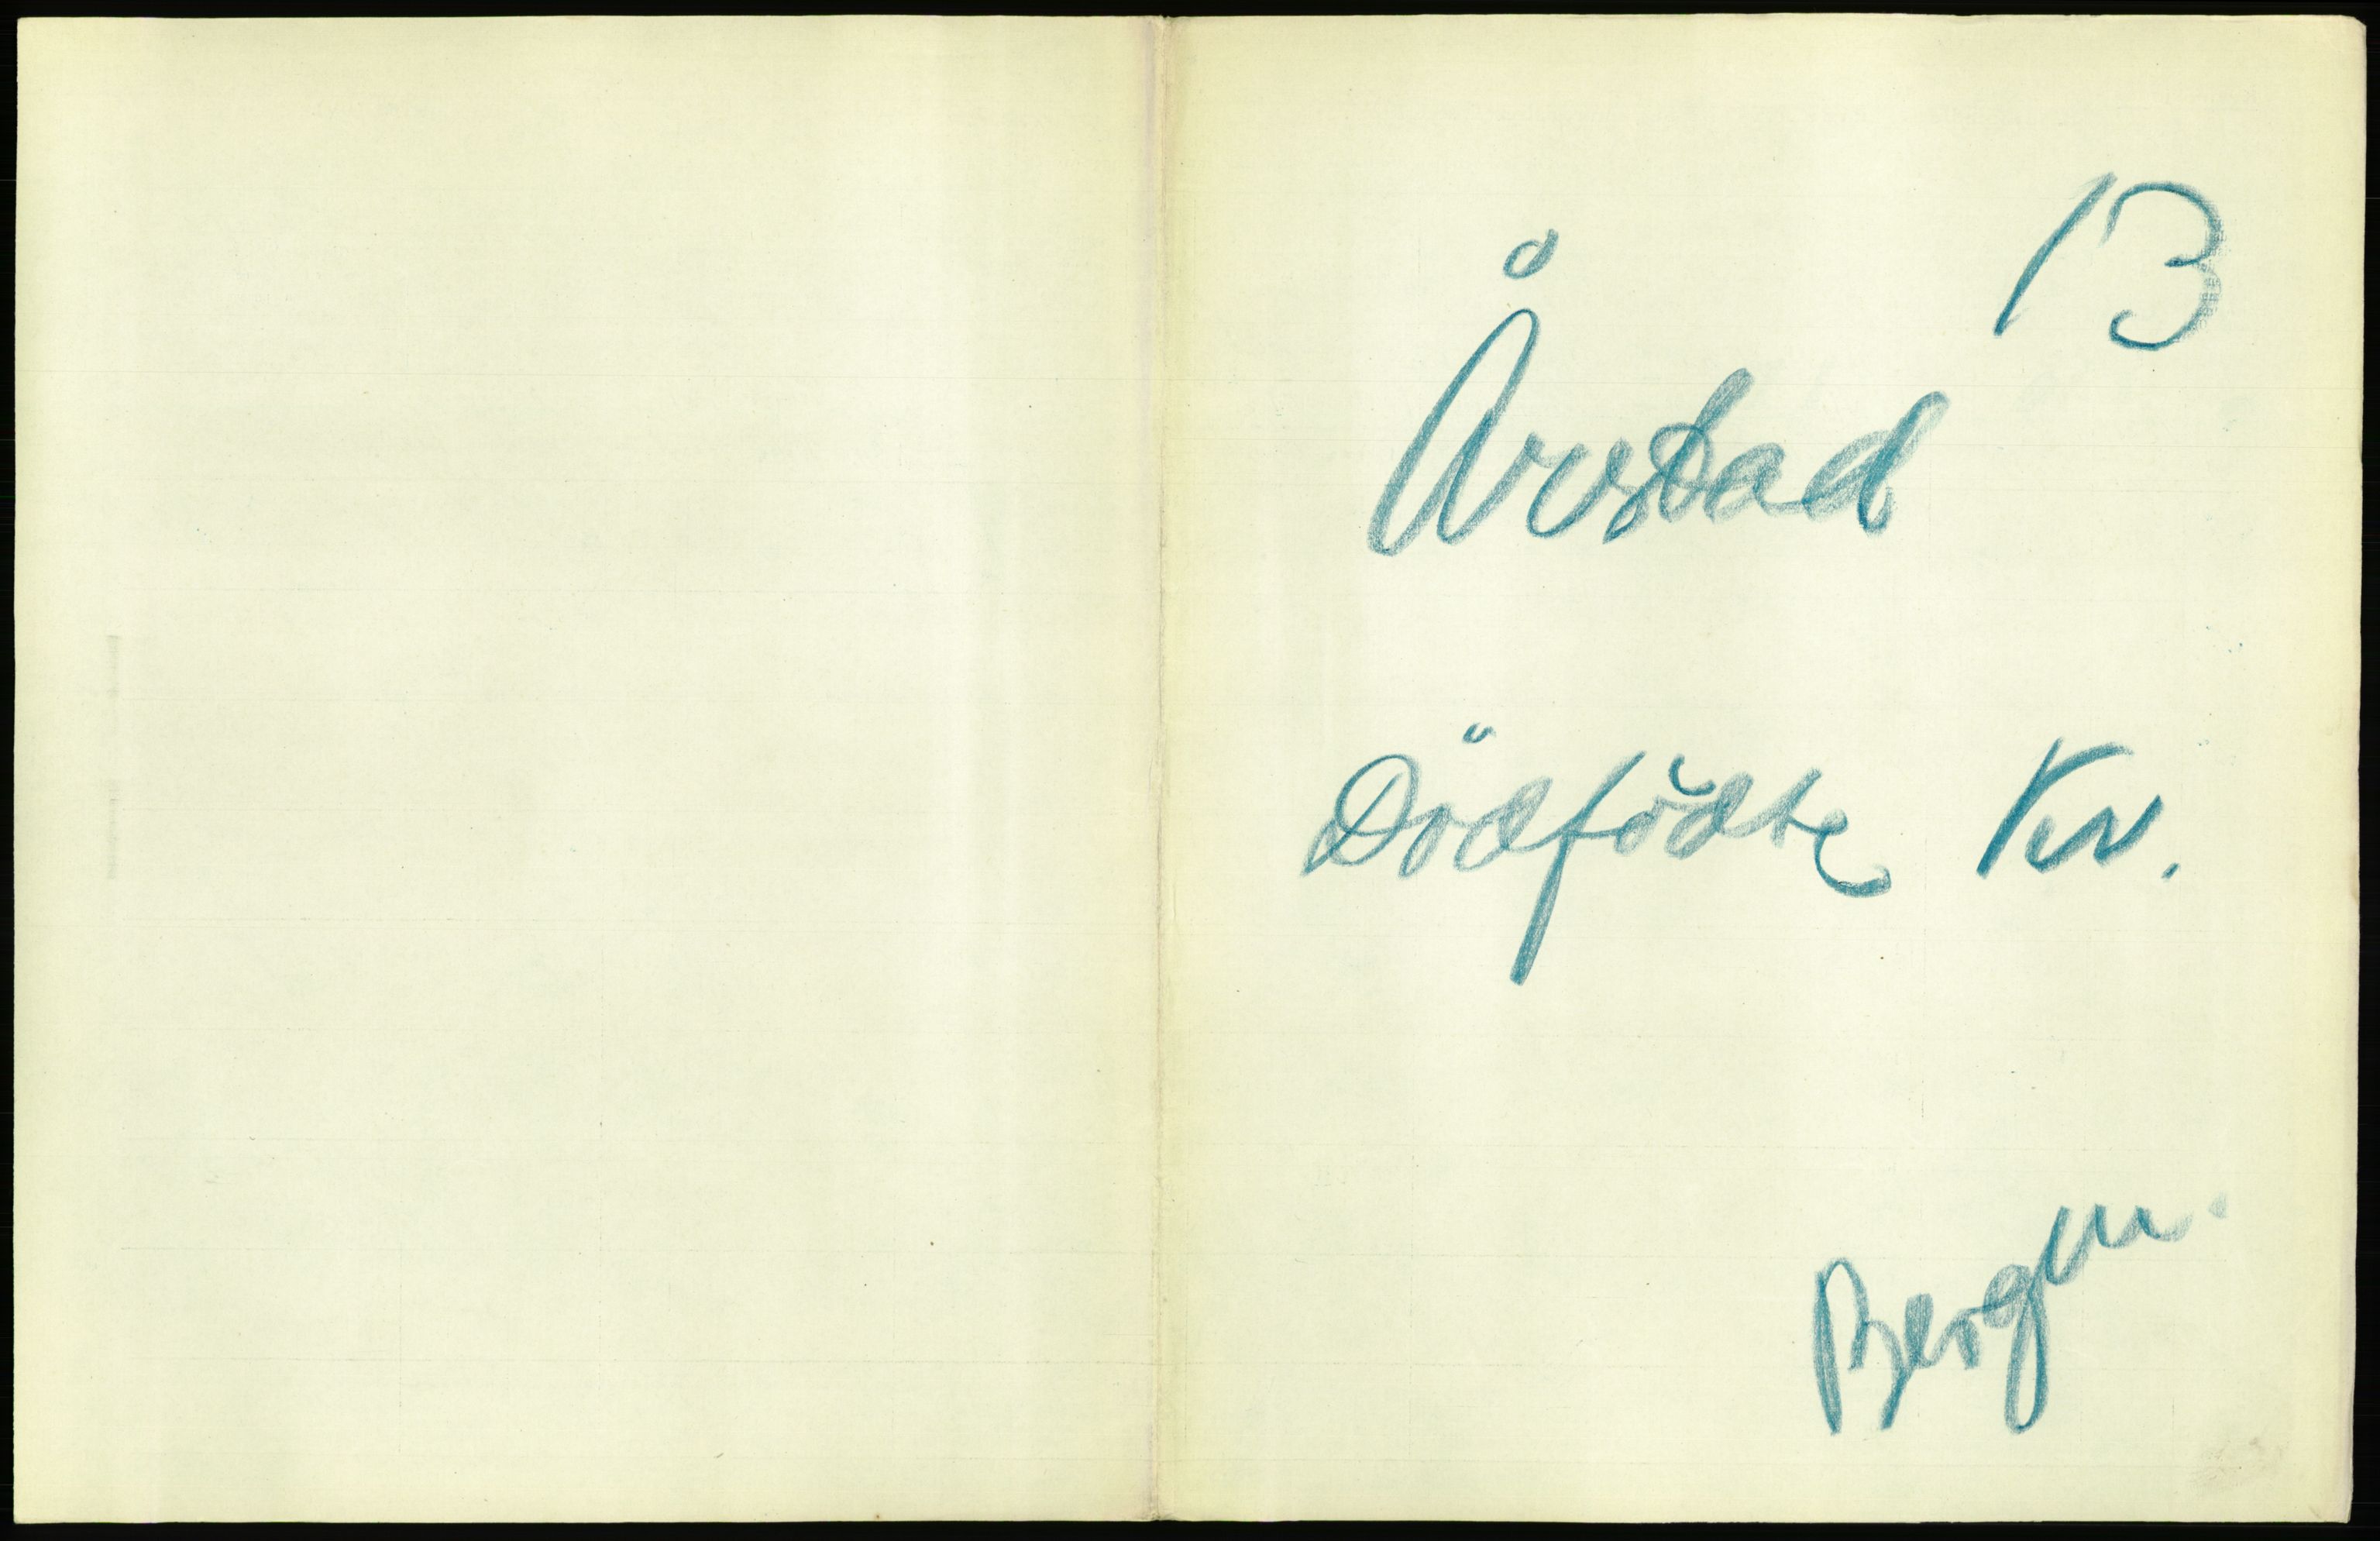 13
Årstad
Dödfödte Kv.
Bergen.